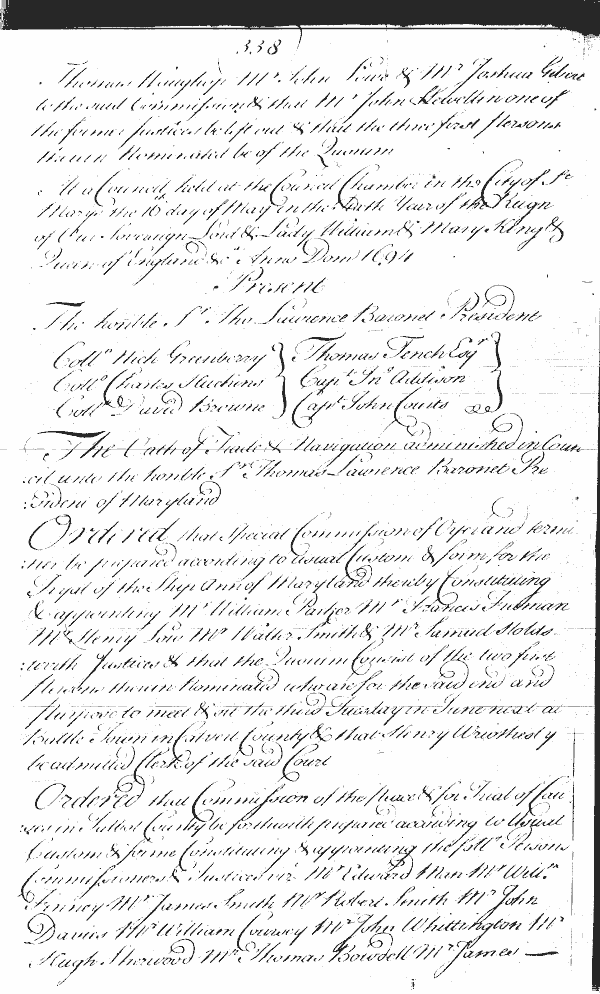 338
Thomas Hinghop Mr John Lowe & Mr Joshua Gibert
to the said Commission & that Mr John Llewellin one of
the former Justices be left out & that the three first persons
therein Nominated be of the Quorum
At a Council held at the Council Chamber in the City of St
Marys the 16th day of May in the Year of the Reign
of Our Sovereign Lord & Lady William & Mary King &
Queen of England &c Anno Dom 1694
Present
The honble Sr Tho Lawrence Baronet President
Collo Nich Greenberry } Thomas Tench Esqr }
Collo Charles Hutchins } Capt Jno Addison }
Collo David Browne } Capt John Courts }
The Oath of Trade & Navigation administred in Coun
cil unto the honble Sr Thomas Lawrence Baronet Pre
sident of Maryland
Ordered that Special Commission of Oyer and termi
ner be prepared according to usual Custom & form for the
Tryal of the Ship Ann of Maryland thereby Constituting
& appointing Mr William Parker Mr Francis Freeman
Mr Henry Low Mr Walter Smith & Mr Samuel Holds
worth Justices & that the Quorum Consist of the two first
persons therein Nominated who are for the said end and
purpose to meet & sit the third Tuesday in June next at
Battle Town in Calvert County & that Henry Wriothesly
be admitted Clerk of the said Court
Ordered that Commission of the peace & for Trial of Cau
ses in Talbot County be forthwith prepared according to Usual
Custom & forme Constituting & appointing the follo Persons
Commissioners & Justices viz Mr Edward Man Mr Willm
Finney Mr James Smith Mr Robert Smith Mr John
Davies Mr William Coursey Mr John Whittington Mr
Hugh Sherwood Mr Thomas Bowdell Mr James —